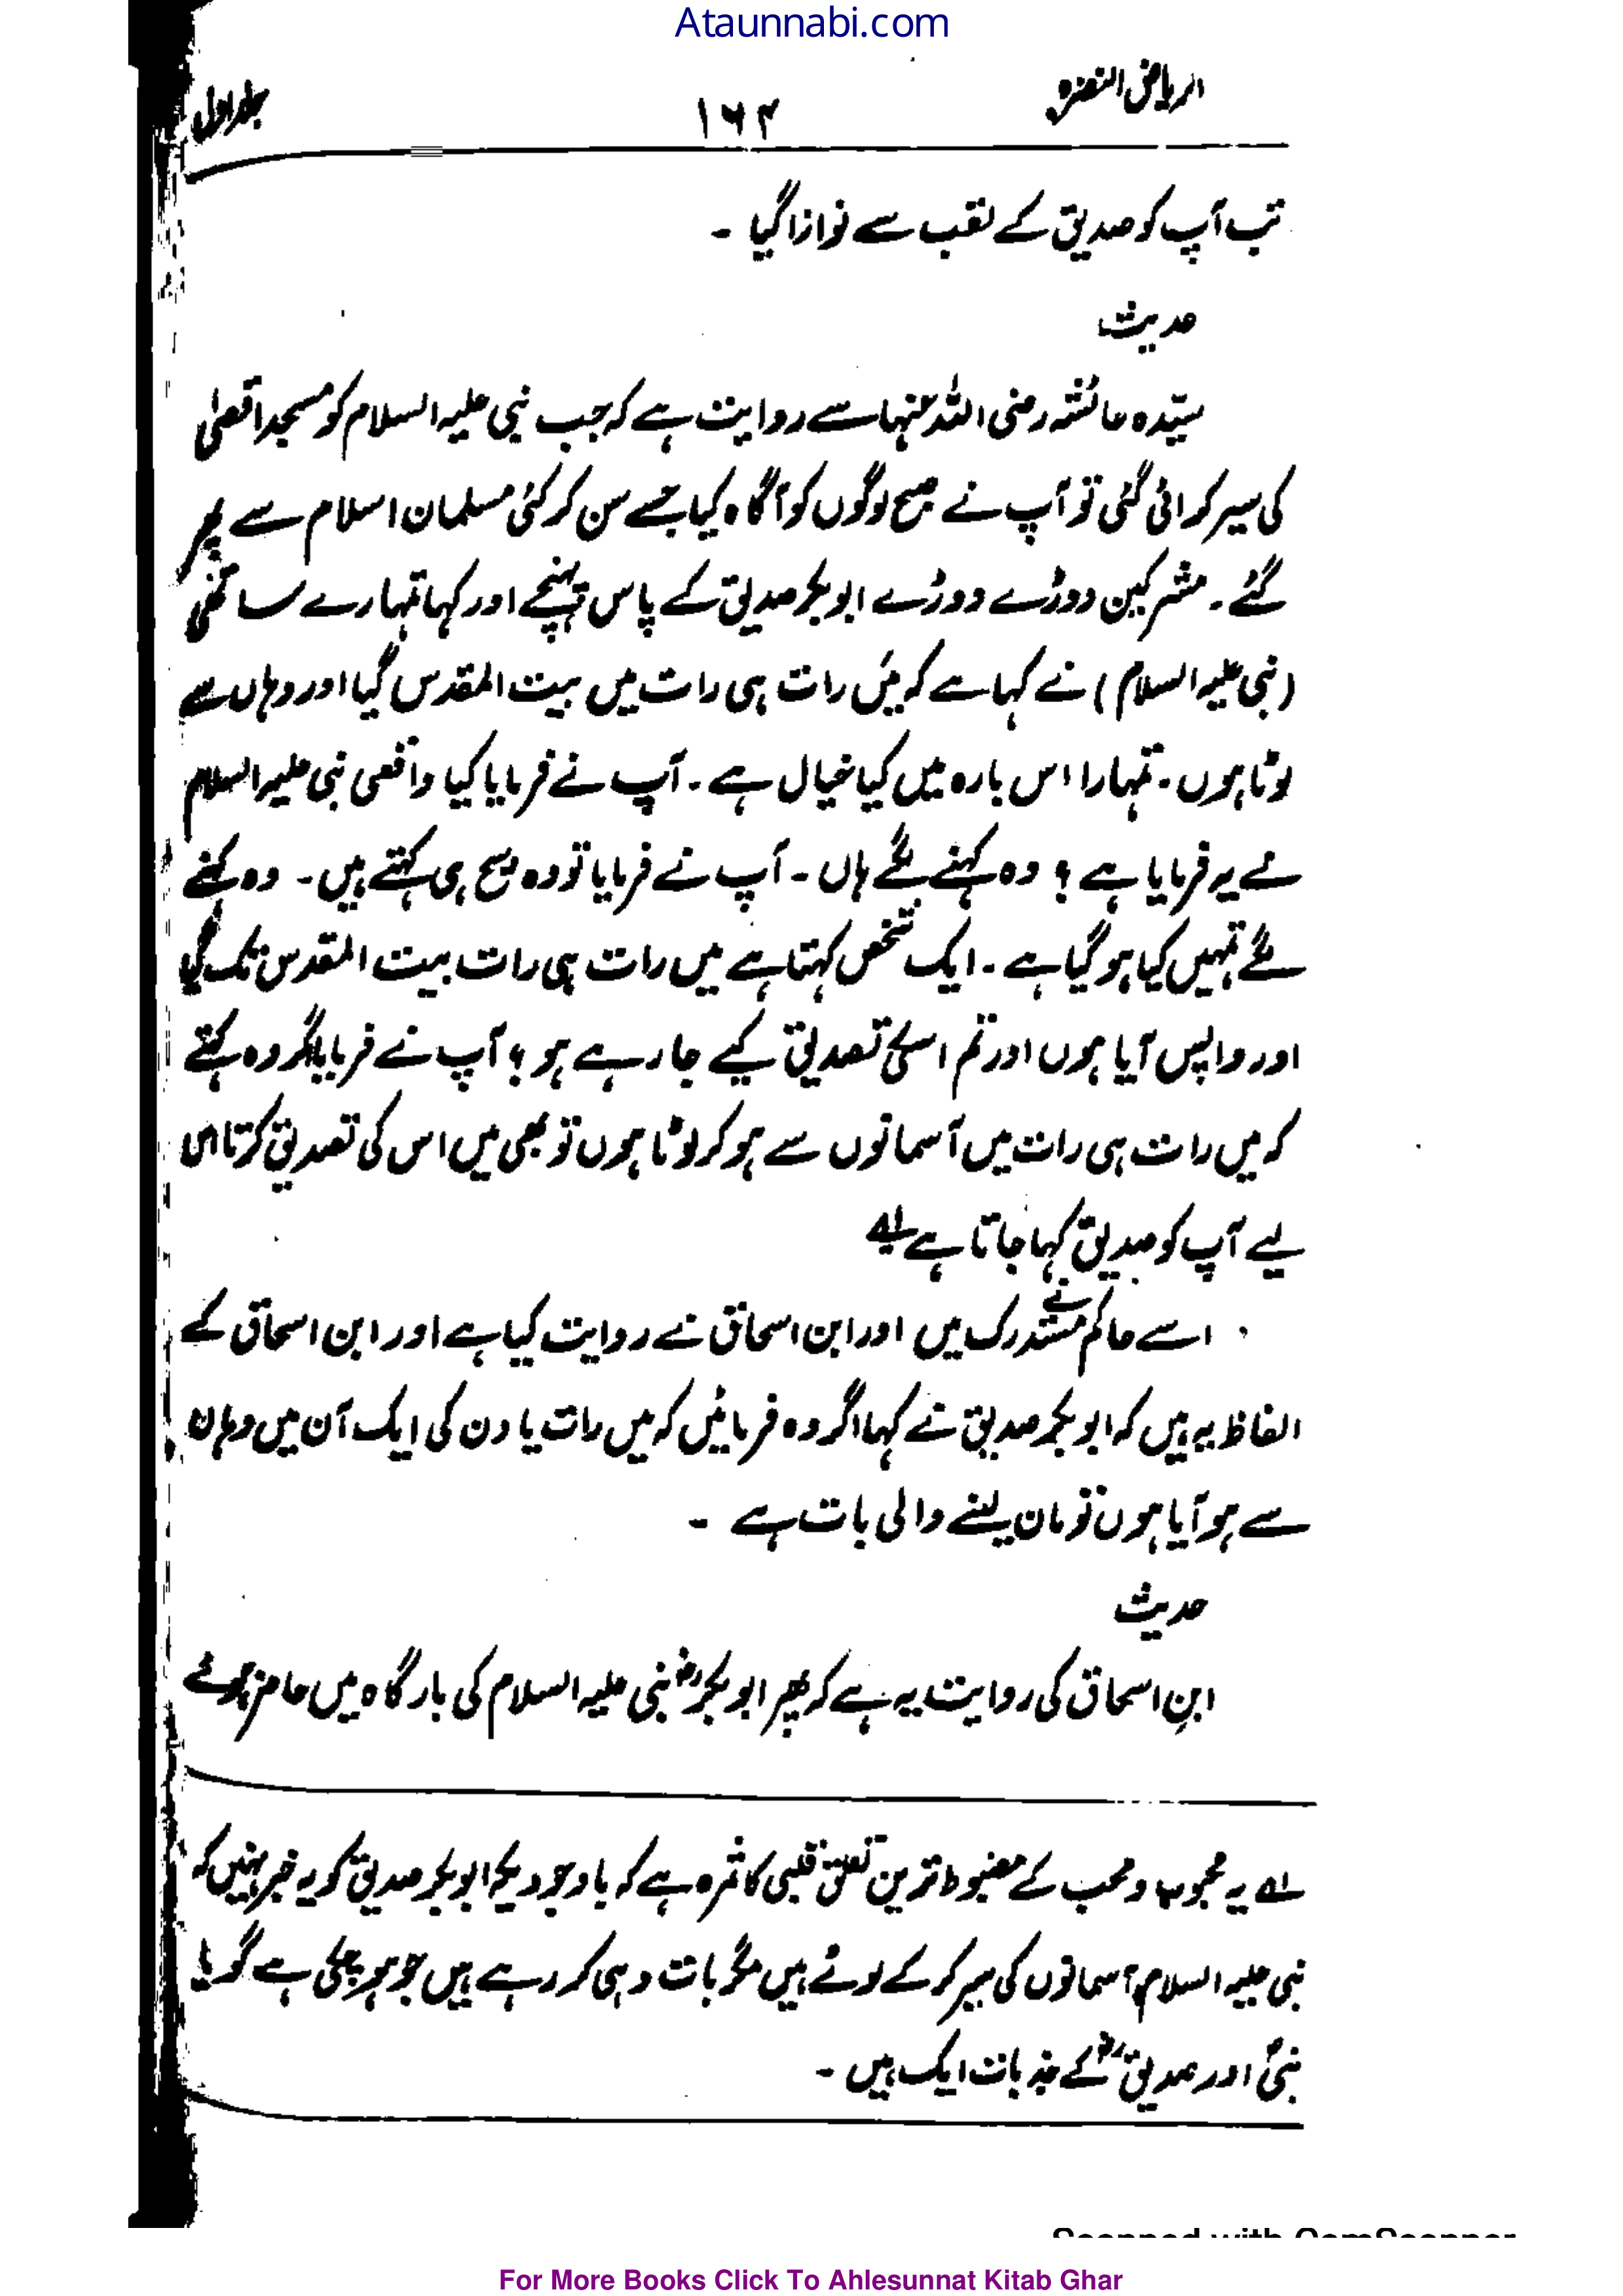 Ataunnabi.com
الریاض النضرہ
۱۶۲
جلد اول
تب آپ کو صدیق کے لقب سے نوازا گیا ۔
حدیث
سیّدہ عائشہ رضی اللہ عنہا سے روایت ہے کہ جب نبی علیہ السلام کو مسجد اقصٰی
کی سیر کرائی گئی تو آپ نے صبح لوگوں کو آگاہ کیا جسے سن کر کئی مسلمان اسلام سے پھر
گئے ۔ مشرکین دوڑے دوڑے ابوبکر صدیق کے پاس پہنچے اور کہا تمہارے ساتھی
(نبی علیہ السلام) نے کہا ہے کہ میں رات ہی رات میں بیت المقدس گیا اور وہاں سے
لوٹا ہوں ۔ تمہارا اس بارہ میں کیا خیال ہے ۔ آپ نے فرمایا کیا واقعی نبی علیہ السلام
نے یہ فرمایا ہے ؟ وہ کہنے لگے ہاں ۔ آپ نے فرمایا تو وہ سچ ہی کہتے ہیں ۔ وہ کہنے
لگے تمہیں کیا ہو گیا ہے ۔ ایک شخص کہتا ہے میں رات ہی رات بیت المقدس تک گیا
اور واپس آیا ہوں اور تم اسکی تصدیق کیے جا رہے ہو ؟ آپ نے فرمایا اگر وہ کہتے
کہ میں رات ہی رات میں آسمانوں سے ہو کر لوٹا ہوں تو بھی میں اس کی تصدیق کرتا اس
لیے آپ کو صدیق کہا جاتا ہے لہ
اسے حاکم نے مستدرک میں اور ابن اسحاق نے روایت کیا ہے اور ابن اسحاق کے
الفاظ یہ ہیں کہ ابوبکر صدیق نے کہا اگر وہ فرمائیں کہ میں رات یا دن کی ایک آن میں وہاں
سے ہو آیا ہوں تو مان لینے والی بات ہے ۔
حدیث
ابنِ اسحاق کی روایت یہ ہے کہ پھر ابوبکرؓ نبی علیہ السلام کی بارگاہ میں حاضر ہوئے
لہ یہ محبوب و محب کے مضبوط ترین تعلق قلبی کا ثمرہ ہے کہ باوجودیکہ ابوبکر صدیق کو یہ خبر نہیں کہ
نبی علیہ السلام آسمانوں کی سیر کر کے لوٹے ہیں مگر بات وہی کر رہے ہیں جو ہو چکی ہے گویا
نبیؐ اور صدیقؓ کے جذبات ایک ہیں ۔
For More Books Click To Ahlesunnat Kitab Ghar